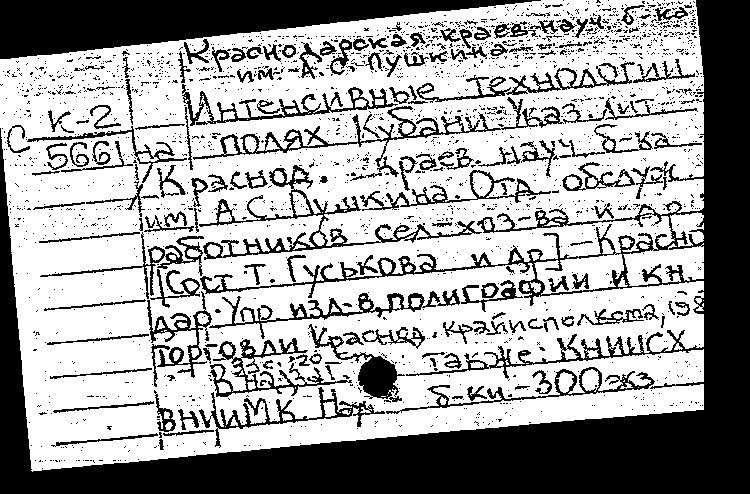 Краснодарская краев. науч. б-ка
им. А.С. Пушкина
Интенсивные технологии
С К-2
5661
на полях Кубани. Указ. лит.
/Краснод. краев. науч. б-ка
им. А.С. Пушкина. Отд обслуж.
работников сел.-хоз-ва и др.;
[Сост. Т. Гуськова и др]. - Красно
дар. Упр изд-в, полиграфии и кн.
торговли Краснод. крайисполкома, 198
20 см
В надзаг. также: КНИИСХ
ВНИИМК. б-ки. - 300 экз